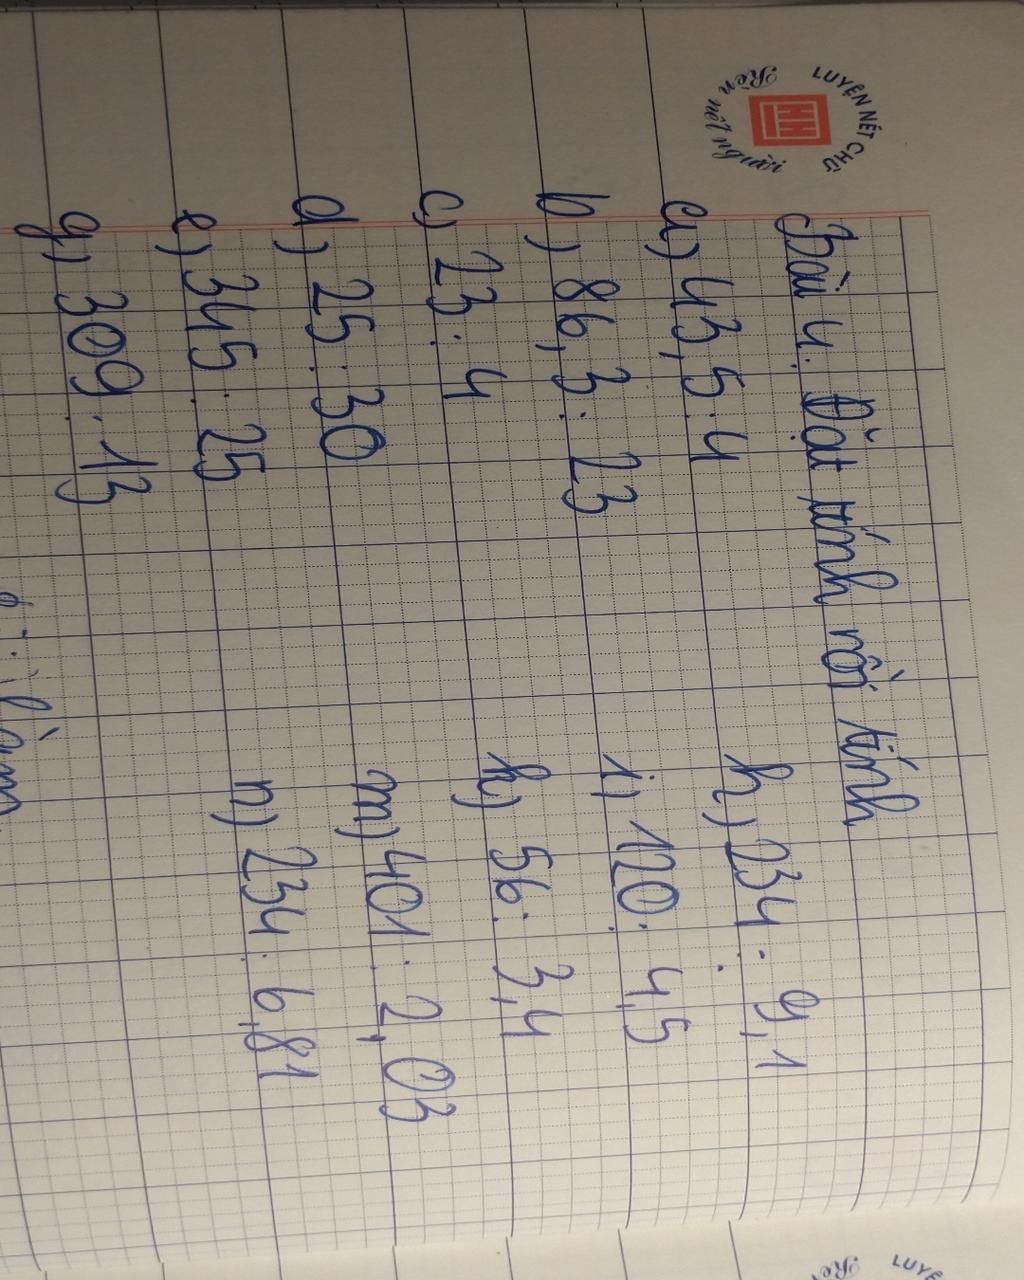 LUYỆN NÉT CHỮ
Rèn nết người
Bài 4. Đặt tính rồi tính
a) 43,5 : 4
h) 234 : 9,1
b) 86,3 : 23
i) 120 : 4,5
c) 23 : 4
k) 56 : 3,4
d) 25 : 30
m) 401 : 2,03
e) 345 : 25
n) 234 : 6,81
g) 309 : 13